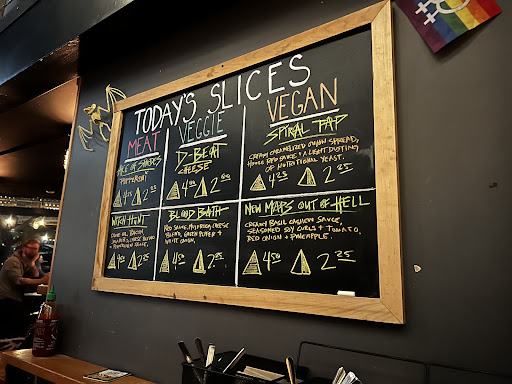 TODAY'S SLICES
MEAT
ACE OF SPADES
PEPPERONI
4.25 2.25
WITCH HUNT
VEGGIE
D-BEAT
CHEESE
4.00 2.00
BLOOD BATH
RED SAUCE, MOZZARELLA CHEESE
BLEND, GREEN PEPPER +
WHITE ONION.
4.50 2.25
VEGAN
SPIRAL TAP
CREAMY CARAMELIZED ONION SPREAD,
HOUSE RED SAUCE + A LIGHT DUSTING
OF NUTRITIONAL YEAST.
4.25 2.25
NEW MAPS OUT OF HELL
CREAMY BASIL CASHEW SAUCE,
SEASONED SOY CURLS + TOMATO,
RED ONION + PINEAPPLE.
4.50 2.25